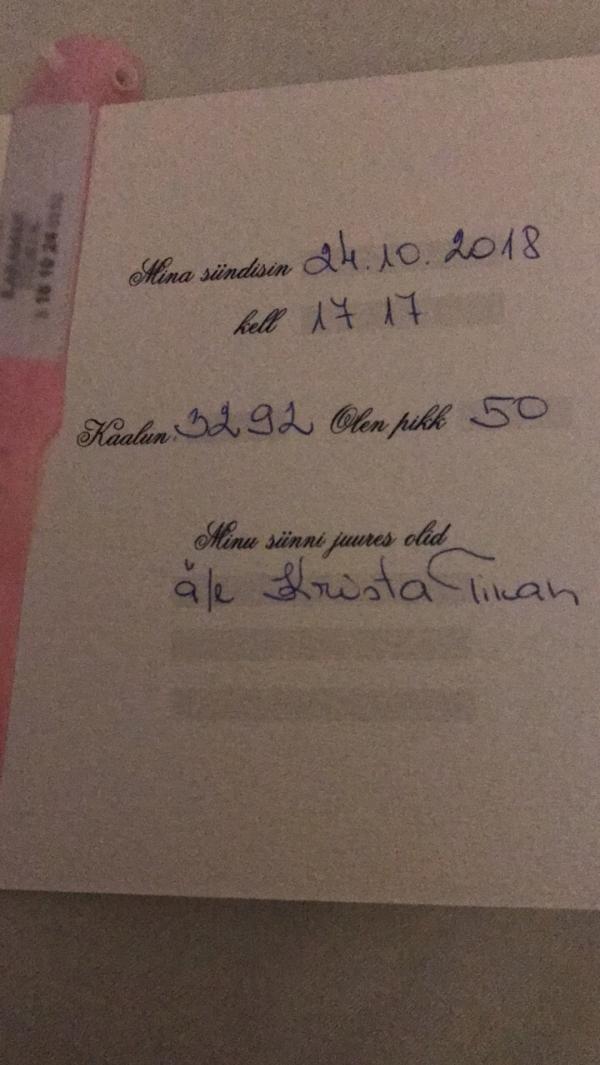 Mina sündisin 24.10.2018
kell 17 17
Kaalun 3292 Olen pikk 50
Minu sünni juures olid
ä/e Krista